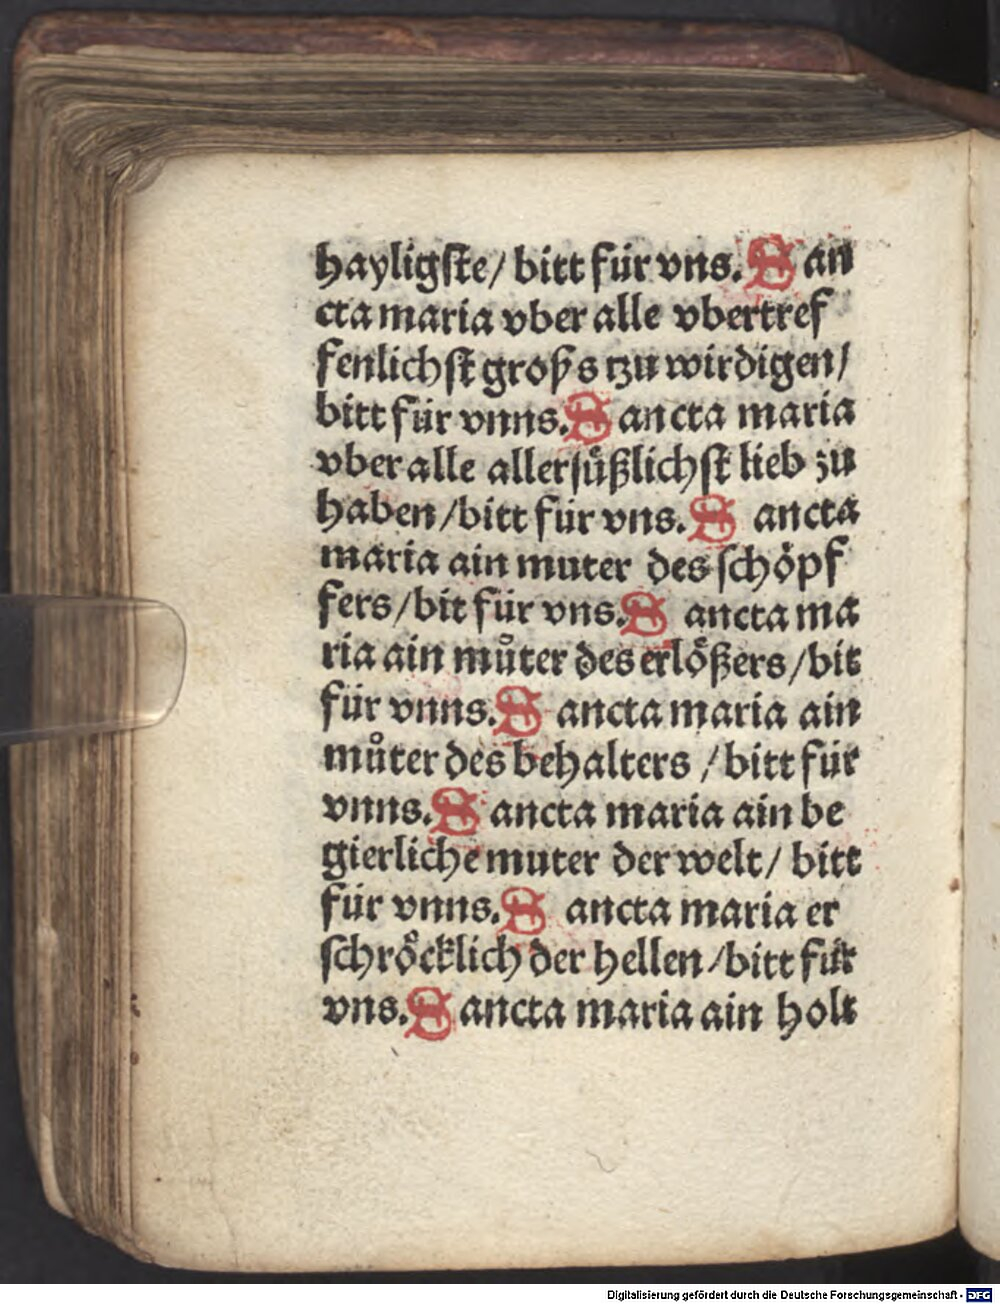 hayligſte/ bitt für vns. San
cta maria vber alle vbertref
fenlichſt groß s tzu wirdigen/
bitt für vnns. Sancta maria
vber alle allerſuͤßlichſt lieb zu
haben/bitt für vns. Sancta
maria ain muter des ſchöpf
fers/bit für vns. Sancta ma
ria ain muͦter des erlößers/bit
für vnns. Sancta maria ain
muͦter des behalters/bitt für
vnns. Sancta maria ain be
gierliche muter der welt/ bitt
für vnns. Sancta maria er
ſchroͤcklich der hellen/bitt für
vns. Sancta maria ain holt
Digitalisierung gefördert durch die Deutsche Forschungsgemeinschaft - DFG